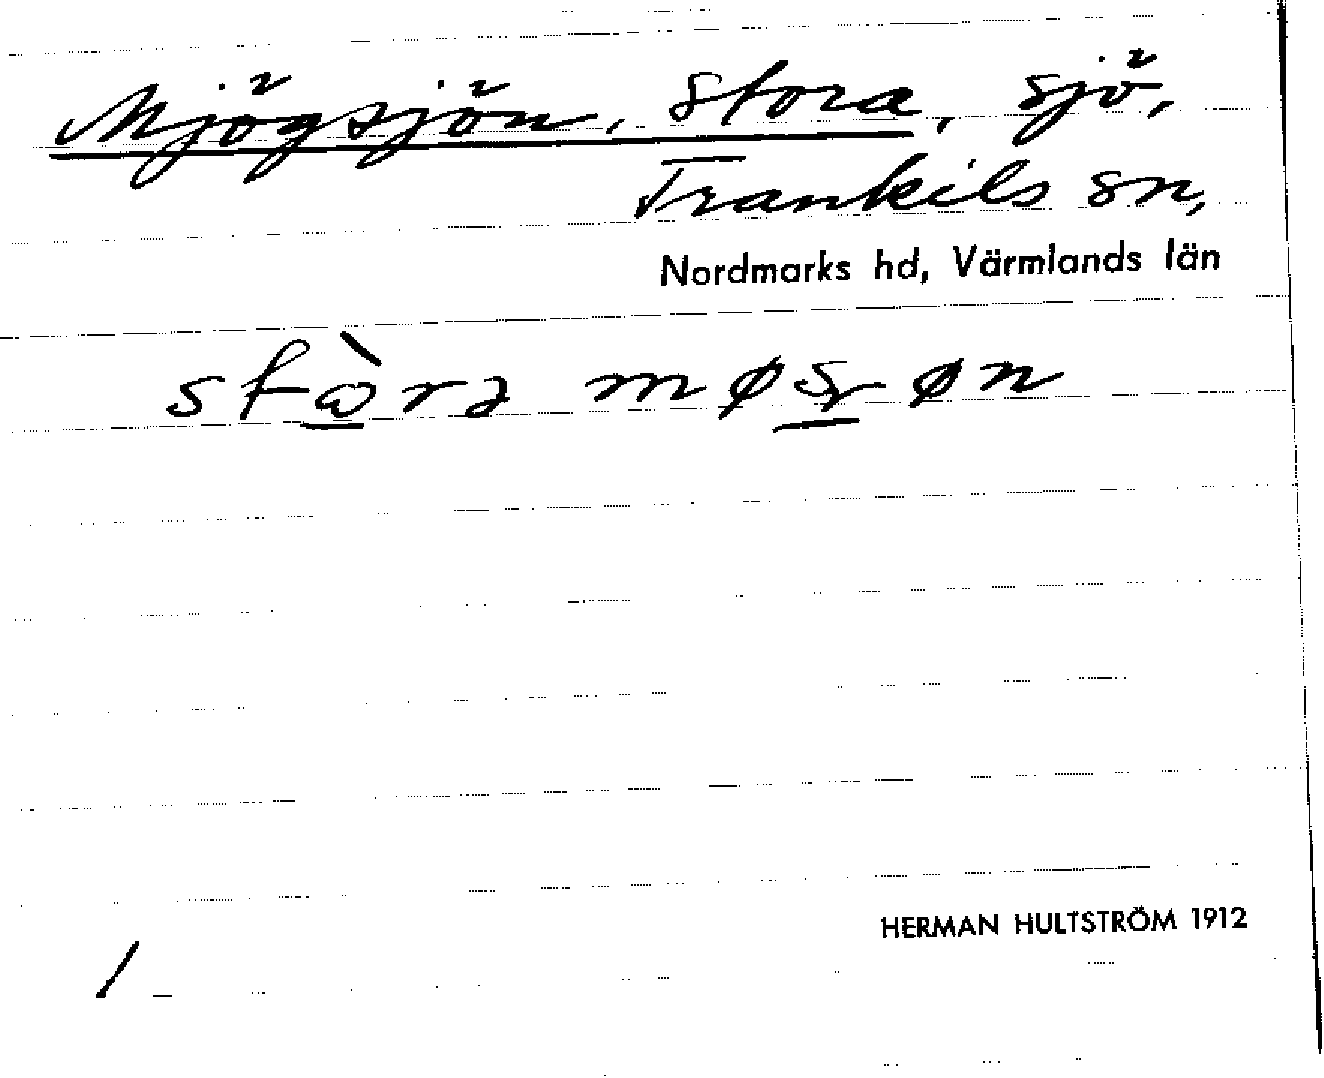 Mjögsjön, Stora, sjö,
Trankils sn,
Nordmarks hd, Värmlands län
stɷ̀ra møsøn
HERMAN HULTSTRÖM 1912
/